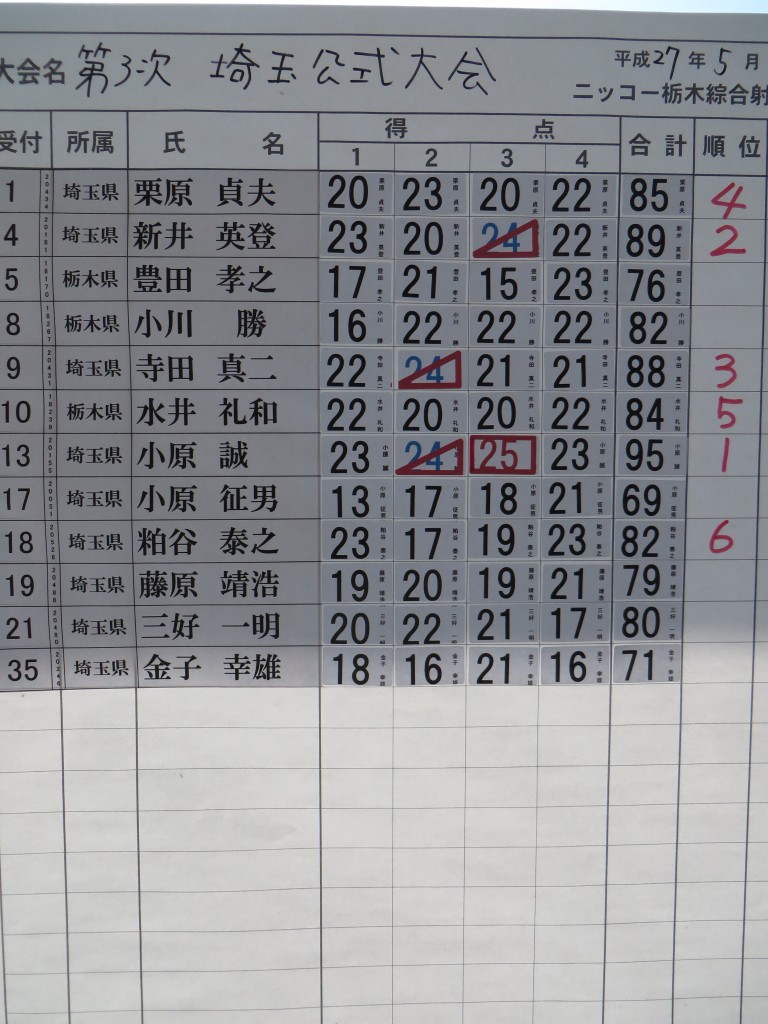 大会名 第3次 埼玉公式大会 平成27年5月
ニッコー栃木綜合射
受付 所属 氏名 得点 合計 順位
1 2 3 4
1 埼玉県 栗原 貞夫 20 23 20 22 85 4
4 埼玉県 新井 英登 23 20 24 22 89 2
5 栃木県 豊田 孝之 17 21 15 23 76
8 栃木県 小川 勝 16 22 22 22 82
9 埼玉県 寺田 真二 22 24 21 21 88 3
10 栃木県 水井 礼和 22 20 20 22 84 5
13 埼玉県 小原 誠 23 24 25 23 95 1
17 埼玉県 小原 征男 13 17 18 21 69
18 埼玉県 粕谷 泰之 23 17 19 23 82 6
19 埼玉県 藤原 靖浩 19 20 19 21 79
21 埼玉県 三好 一明 20 22 21 17 80
35 埼玉県 金子 幸雄 18 16 21 16 71